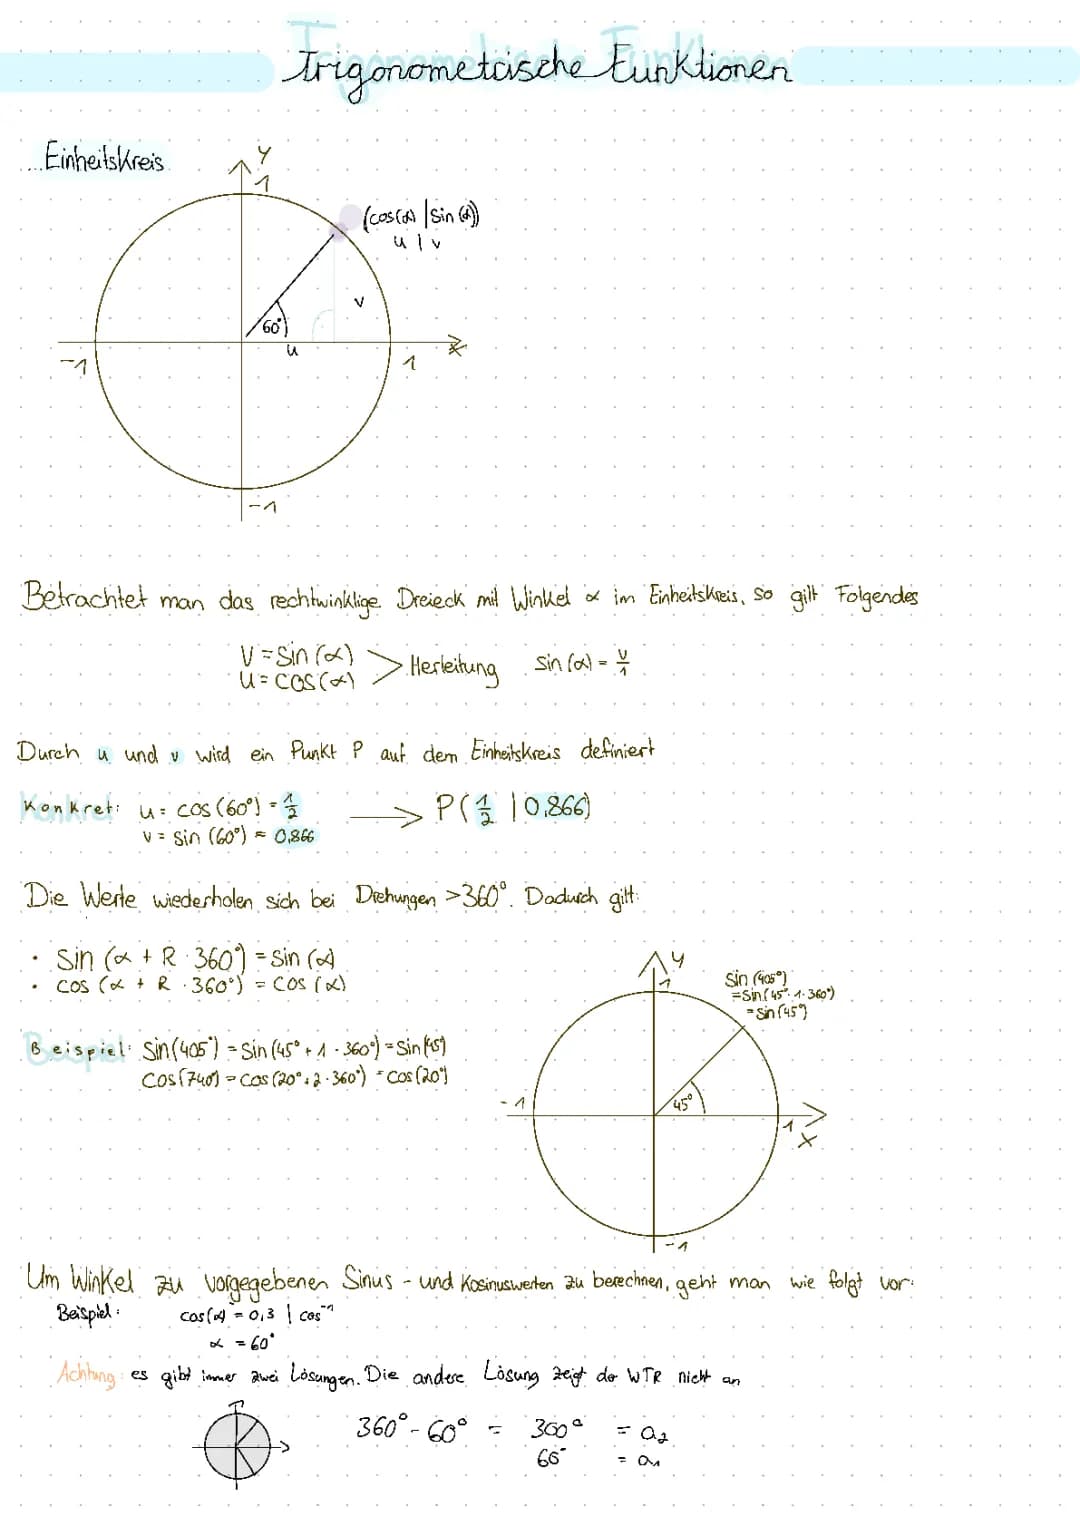 Trigonometrische Funktionen
Einheitskreis
y
1
(cos(α) | sin(α))
u | v
v
60°
u
x
-1
1
-1
Betrachtet man das rechtwinklige Dreieck mit Winkel α im Einheitskreis, so gilt Folgendes
v = sin(α)
u = cos(α) > Herleitung sin(α) = v/1
Durch u und v wird ein Punkt P auf dem Einheitskreis definiert
Konkret: u = cos(60°) = 1/2 → P(1/2 | 0,866)
v = sin(60°) ≈ 0,866
Die Werte wiederholen sich bei Drehungen >360°. Dadurch gilt:
• sin(α + R · 360°) = sin(α)
• cos(α + R · 360°) = cos(α)
y
1
sin(405°)
= sin(45° · 1 · 360°)
= sin(45°)
Beispiel: sin(405°) = sin(45° + 1 · 360°) = sin(45°)
cos(740°) = cos(20° + 2 · 360°) = cos(20°)
-1
45°
1
x
-1
Um Winkel zu vorgegebenen Sinus- und Kosinuswerten zu berechnen, geht man wie folgt vor:
Beispiel: cos(α) = 0,3 | cos⁻¹
α = 60°
Achtung: es gibt immer zwei Lösungen. Die andere Lösung zeigt der WTR nicht an
360° - 60° = 300° = a₂
60° = a₁